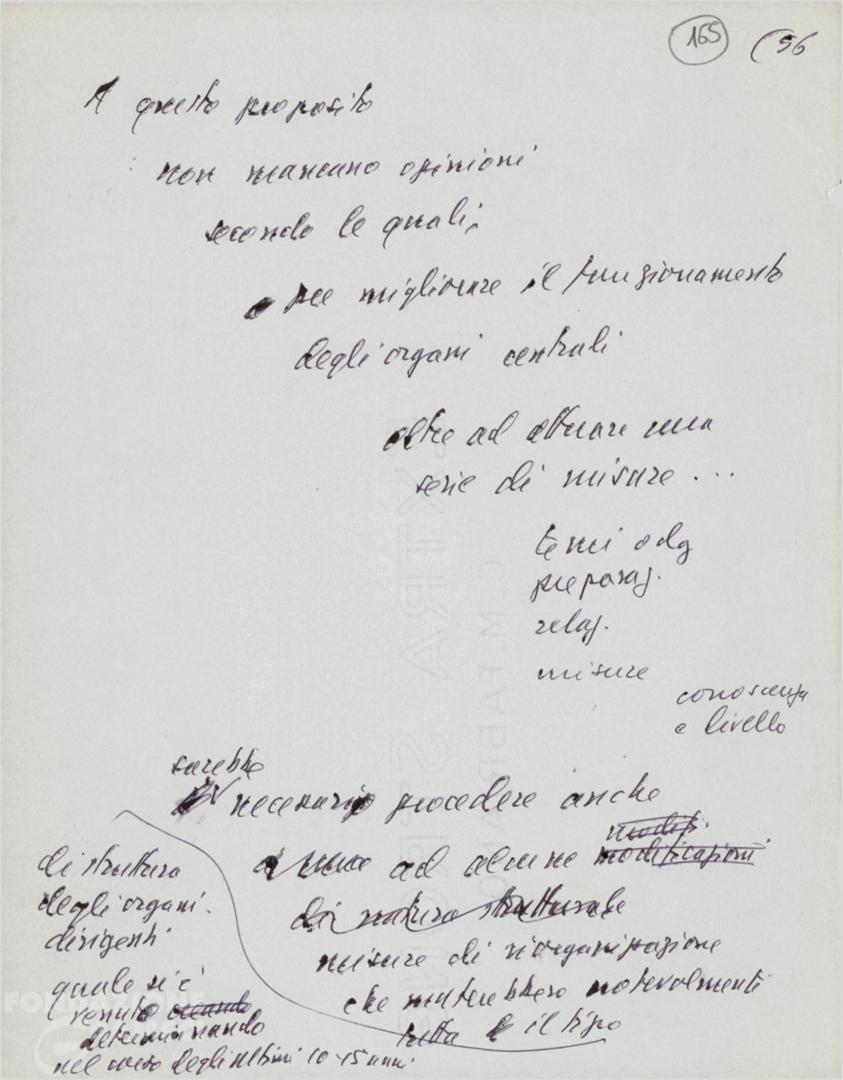 165 (56
A questo proposito
non mancano opinioni
secondo le quali,
per migliorare il funzionamento
degli organi centrali
oltre ad attuare una
serie di misure ...
temi odg
preparaz.
relaz.
misure
conoscenza
a livello
sarebbe
necessario procedere anche
ad alcune modifi. modificazioni
di natura strutturale
misure di riorganizzazione
che muterebbero notevolmente
tutta il tipo
di struttura
degli organi
dirigenti
quale si è
venuto creando
determinando
nel corso degli ultimi 10-15 anni
FONDAZIONE